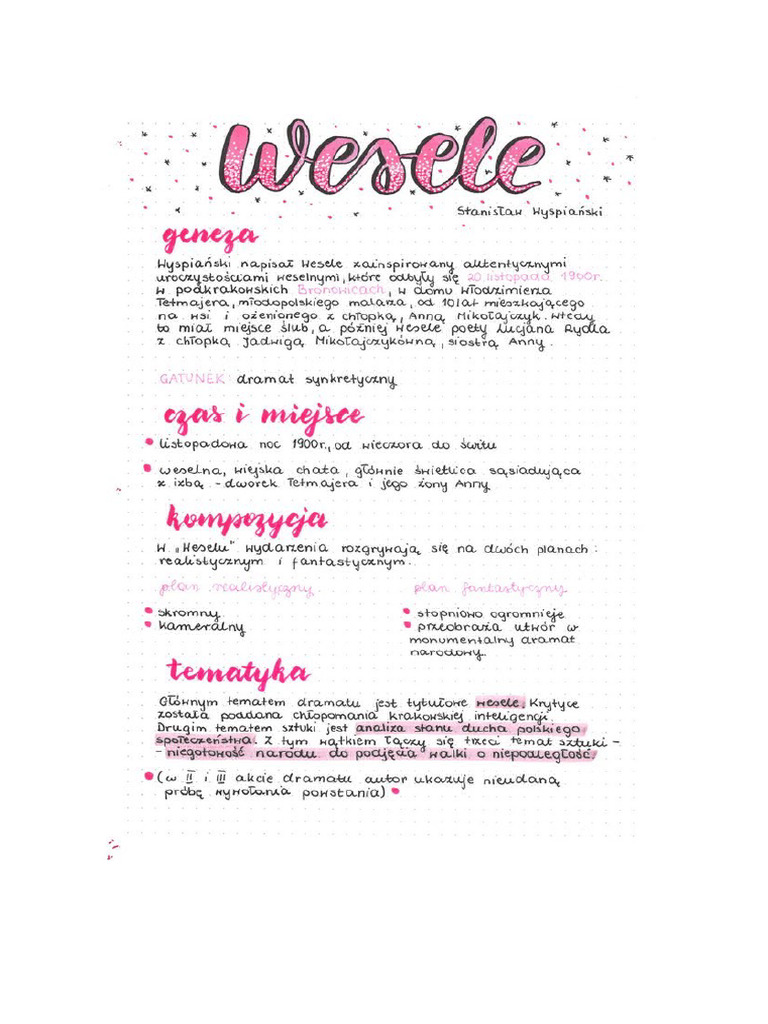 Wesele
Stanisław Wyspiański
geneza
Wyspiański napisał Wesele zainspirowany autentycznymi
uroczystościami weselnymi, które odbyły się 20 listopada 1900r.
w podkrakowskich Bronowicach, w domu Włodzimierza
Tetmajera, młodopolskiego malarza, od 10 lat mieszkającego
na wsi i ożenionego z chłopką, Anną Mikołajczyk. Wtedy
to miał miejsce ślub, a później wesele poety Lucjana Rydla
z chłopką Jadwigą Mikołajczykówną, siostrą Anny.
GATUNEK: dramat synkretyczny
czas i miejsce
• listopadowa noc 1900r., od wieczora do świtu
• weselna, wiejska chata, głównie świetlica sąsiadująca
z izbą - dworek Tetmajera i jego żony Anny
kompozycja
W „Weselu" wydarzenia rozgrywają się na dwóch planach:
realistycznym i fantastycznym.
plan realistyczny
• skromny
• kameralny
plan fantastyczny
• stopniowo ogromnieje
• przeobraża utwór w
monumentalny dramat
narodowy.
tematyka
Głównym tematem dramatu jest tytułowe wesele. Krytyce
została poddana chłopomania krakowskiej inteligencji.
Drugim tematem sztuki jest analiza stanu ducha polskiego
społeczeństwa. Z tym wątkiem łączy się trzeci temat sztuki -
- niegotowość narodu do podjęcia walki o niepodległość.
• (w II i III akcie dramatu autor ukazuje nieudaną
próbę wywołania powstania) •